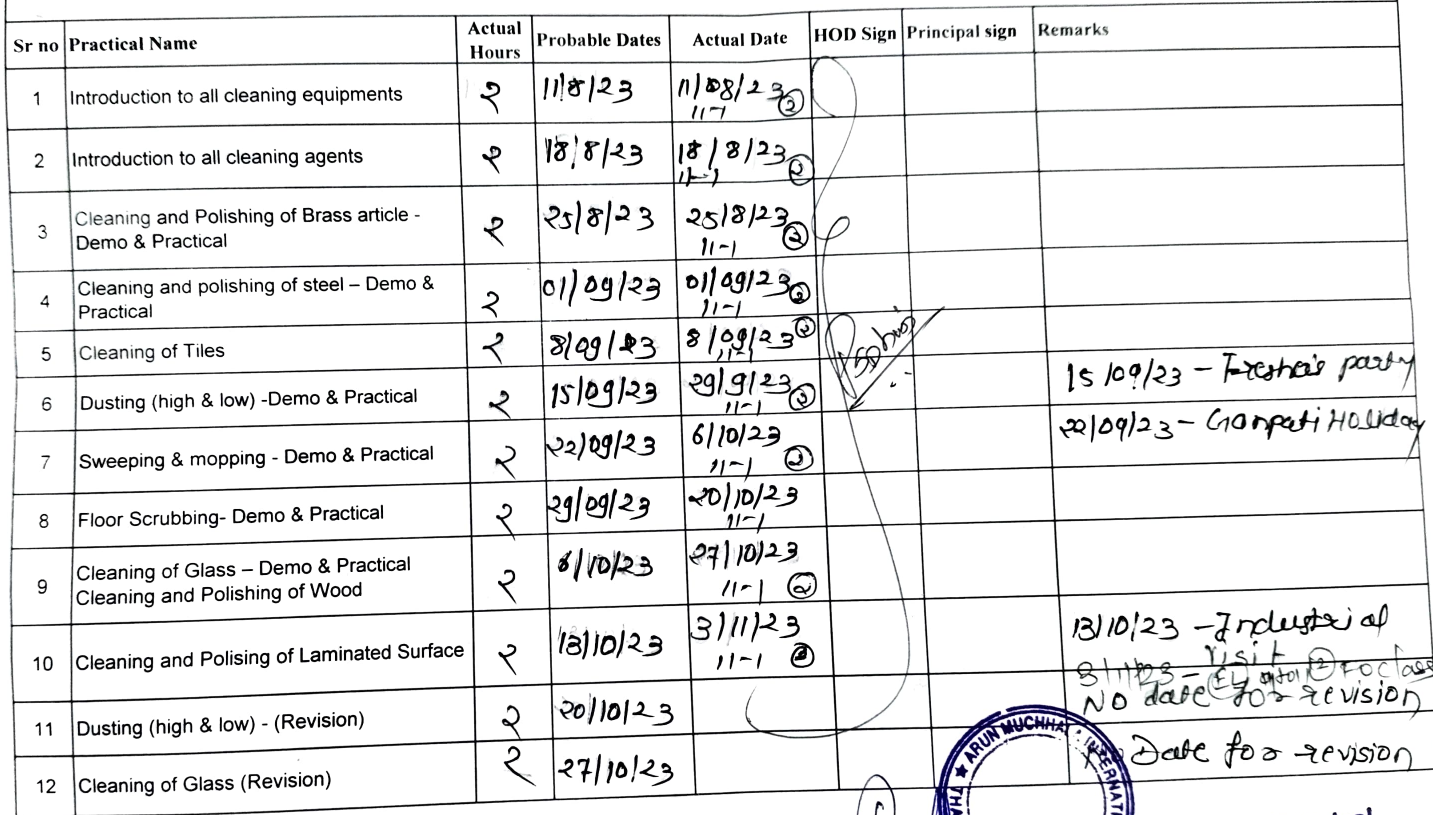 Sr no Practical Name Actual Hours Probable Dates Actual Date HOD Sign Principal sign Remarks
1 Introduction to all cleaning equipments २ 11/8/23 11/08/23 11-1 ②
2 Introduction to all cleaning agents २ 18/8/23 18/8/23 11-1 ②
3 Cleaning and Polishing of Brass article - Demo & Practical २ 25/8/23 25/8/23 11-1 ②
4 Cleaning and polishing of steel – Demo & Practical २ 01/09/23 01/09/23 11-1 ②
5 Cleaning of Tiles २ 8/09/23 8/09/23 11-1 ②
6 Dusting (high & low) -Demo & Practical २ 15/09/23 29/9/23 11-1 ② 15/09/23 - Fresher's party
7 Sweeping & mopping - Demo & Practical २ 22/09/23 6/10/23 11-1 ② 22/09/23 - Ganpati Holiday
8 Floor Scrubbing- Demo & Practical २ 29/09/23 20/10/23 11-1
9 Cleaning of Glass – Demo & Practical
Cleaning and Polishing of Wood २ 6/10/23 27/10/23 11-1 ②
10 Cleaning and Polising of Laminated Surface २ 13/10/23 3/11/23 11-1 ② 13/10/23 - Industrial visit
11 Dusting (high & low) - (Revision) २ 20/10/23 No date for revision
12 Cleaning of Glass (Revision) २ 27/10/23 No Date for revision
★ ARUN MUCHHAL